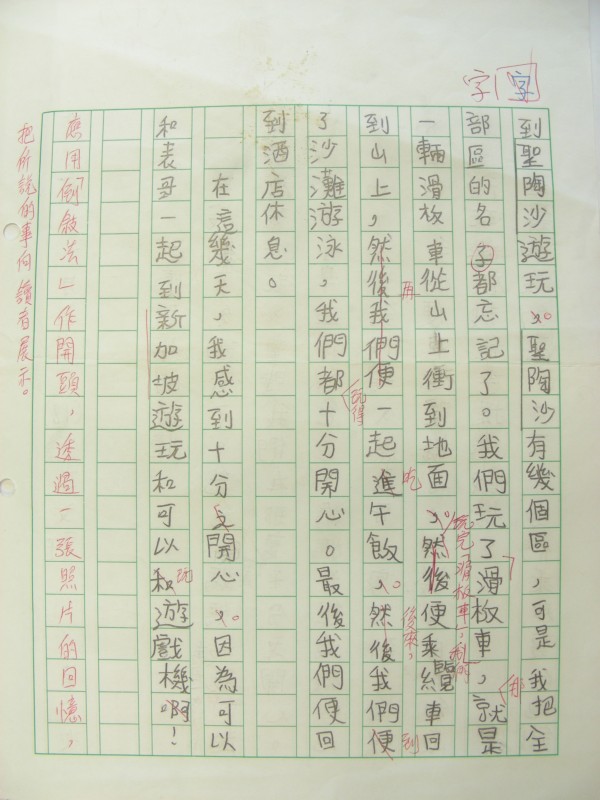 字 字
到聖陶沙遊玩，。聖陶沙有幾個區，可是我把全
部區的名字都忘記了。我們玩了滑板車，就是
那
一輛滑板車從山上衝到地面，。然後便乘纜車回
玩完「滑板車」，我們
再
吃
到山上，然後我們便一起進午飯，。然後我們便
後來，
到
了沙灘游泳，我們都十分開心。最後我們便回
玩得
到酒店休息。
在這幾天，我感到十分開心，。因為可以
和表哥一起到新加坡遊玩和可以和遊戲機啊！
玩
應用「倒敘法」作開頭，透過一張照片的回憶，
把所說的事向讀者展示。